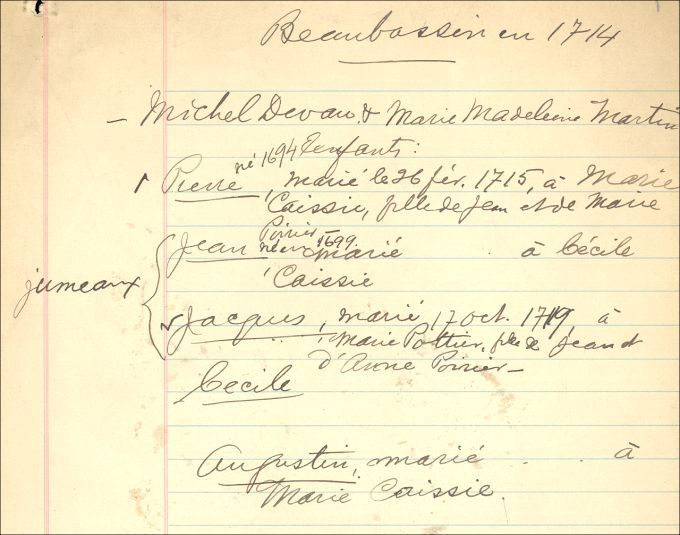 Beaubassin en 1714
– Michel Devau & Marie Madeleine Martin
né 1694 enfants:
Pierre, marié le 26 fév. 1715, à Marie
Caissie, fille de Jean et de Marie
Poirier
Jean né en 1699 marié à Cécile
Caissie
jumeaux
Jacques, marié 17 oct. 1719, à
Marie Pottier, fille de Jean et
d'Anne Poirier –
Cécile
Augustin, marié . . à
Marie Caissie.